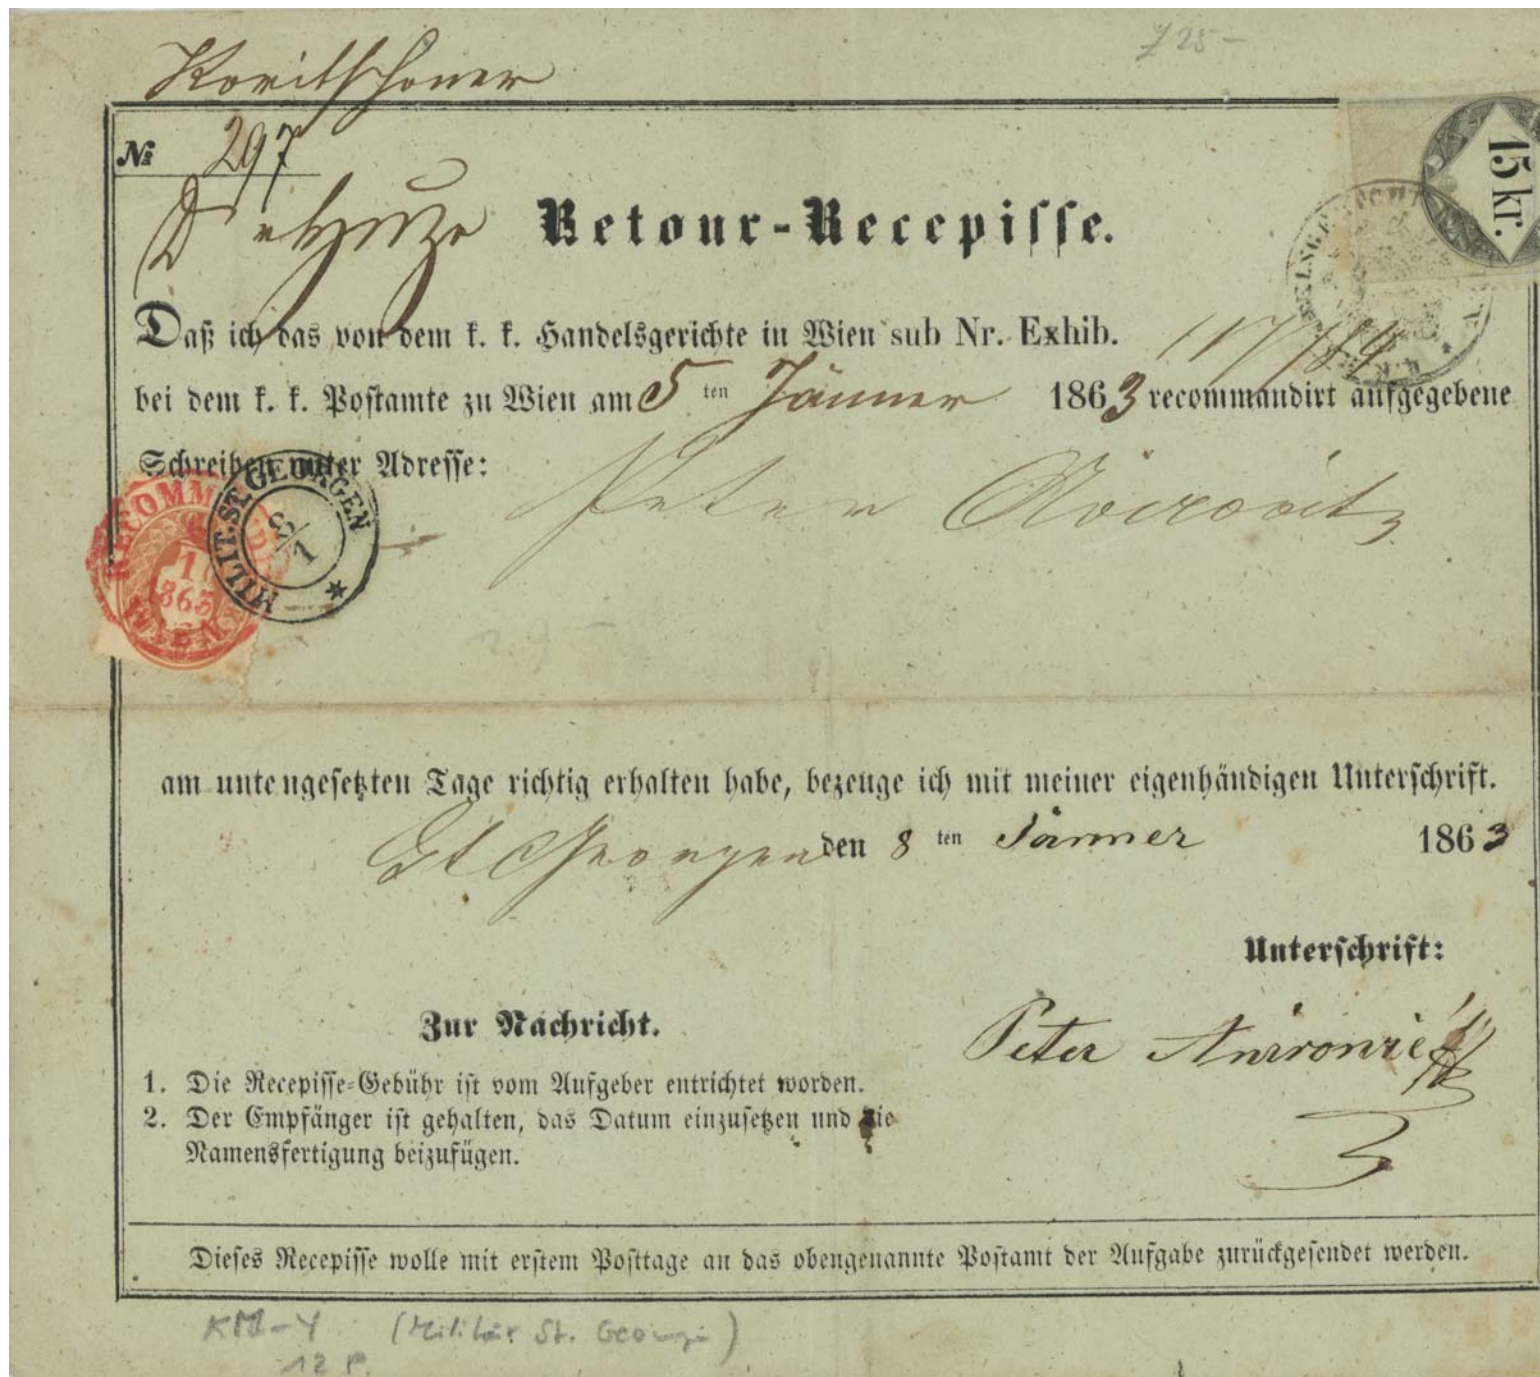 725-
Koritschoner
№ 297
Retour-Recepisse.
15 kr.
Daß ich das von dem k. k. Handelsgerichte in Wien sub Nr. Exhib.
bei dem k. k. Postamte zu Wien am 5 ten Jänner 1863 recommandirt aufgegebene
Schreiben unter Adresse:
Peter
MILIT. ST. GEORGEN
8/1
RECOMMANDIRT
WIEN
am untengesetzten Tage richtig erhalten habe, bezeuge ich mit meiner eigenhändigen Unterschrift.
St Georgen den 8 ten Jänner 1863
Unterschrift:
Peter
Zur Nachricht.
1. Die Recepisse-Gebühr ist vom Aufgeber entrichtet worden.
2. Der Empfänger ist gehalten, das Datum einzusetzen und die
Namensfertigung beizufügen.
Dieses Recepisse wolle mit erstem Posttage an das obengenannte Postamt der Aufgabe zurückgesendet werden.
(Militär St. Georgen)
12 P.